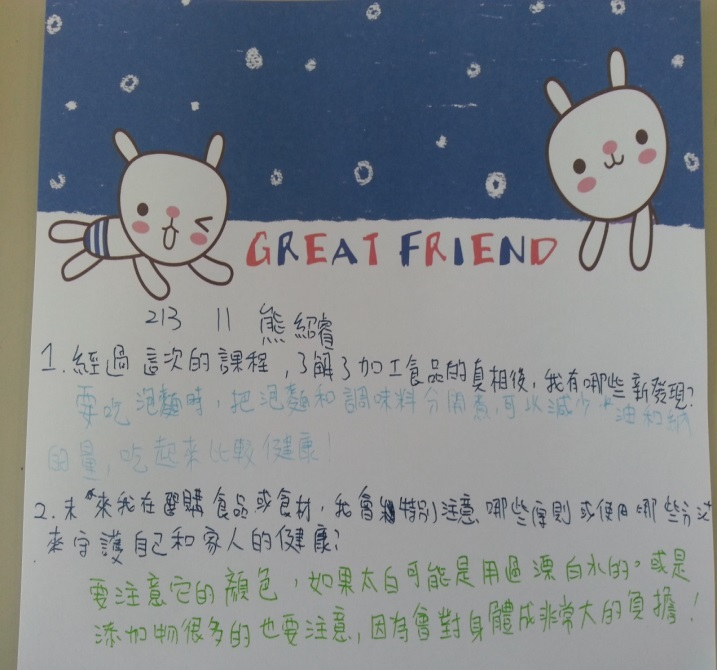 GREAT FRIEND
213 11 熊紹睿
1.經過這次的課程,了解了加工食品的真相後,我有哪些新發現?
要吃泡麵時,把泡麵和調味料分開煮,可以減少油和鈉
的量,吃起來比較健康!
2.未來我在選購食品或食材,我會特別注意哪些原則或使用哪些方法
來守護自己和家人的健康?
要注意它的顏色,如果太白可能是用過漂白水的。或是
添加物很多的也要注意,因為會對身體成非常大的負擔!